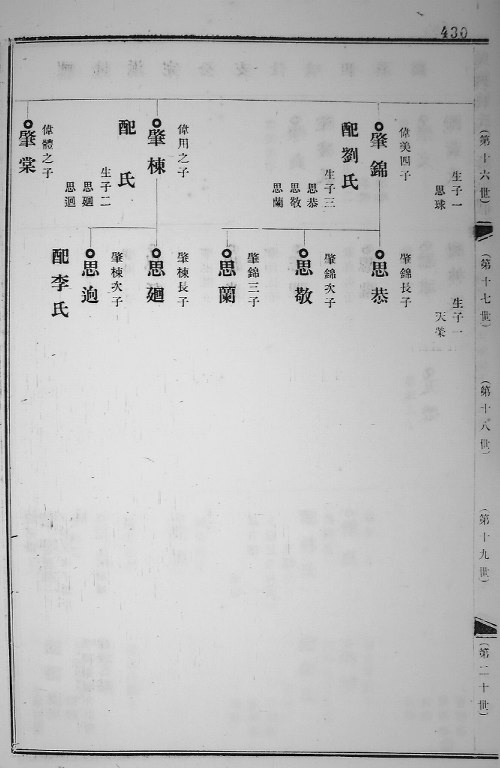 430
(第十六世)
(第十七世)
(第十八世)
(第十九世)
(第二十世)
生子一
思球
偉美四子
肇錦
配劉氏
生子三
思恭
思敬
思蘭
偉用之子
肇棟
配 氏
生子二
思廻
思逈
偉體之子
肇棠
生子一
天榮
肇錦長子
思恭
肇錦次子
思敬
肇錦三子
思蘭
肇棟長子
思廻
肇棟次子
思逈
配李氏